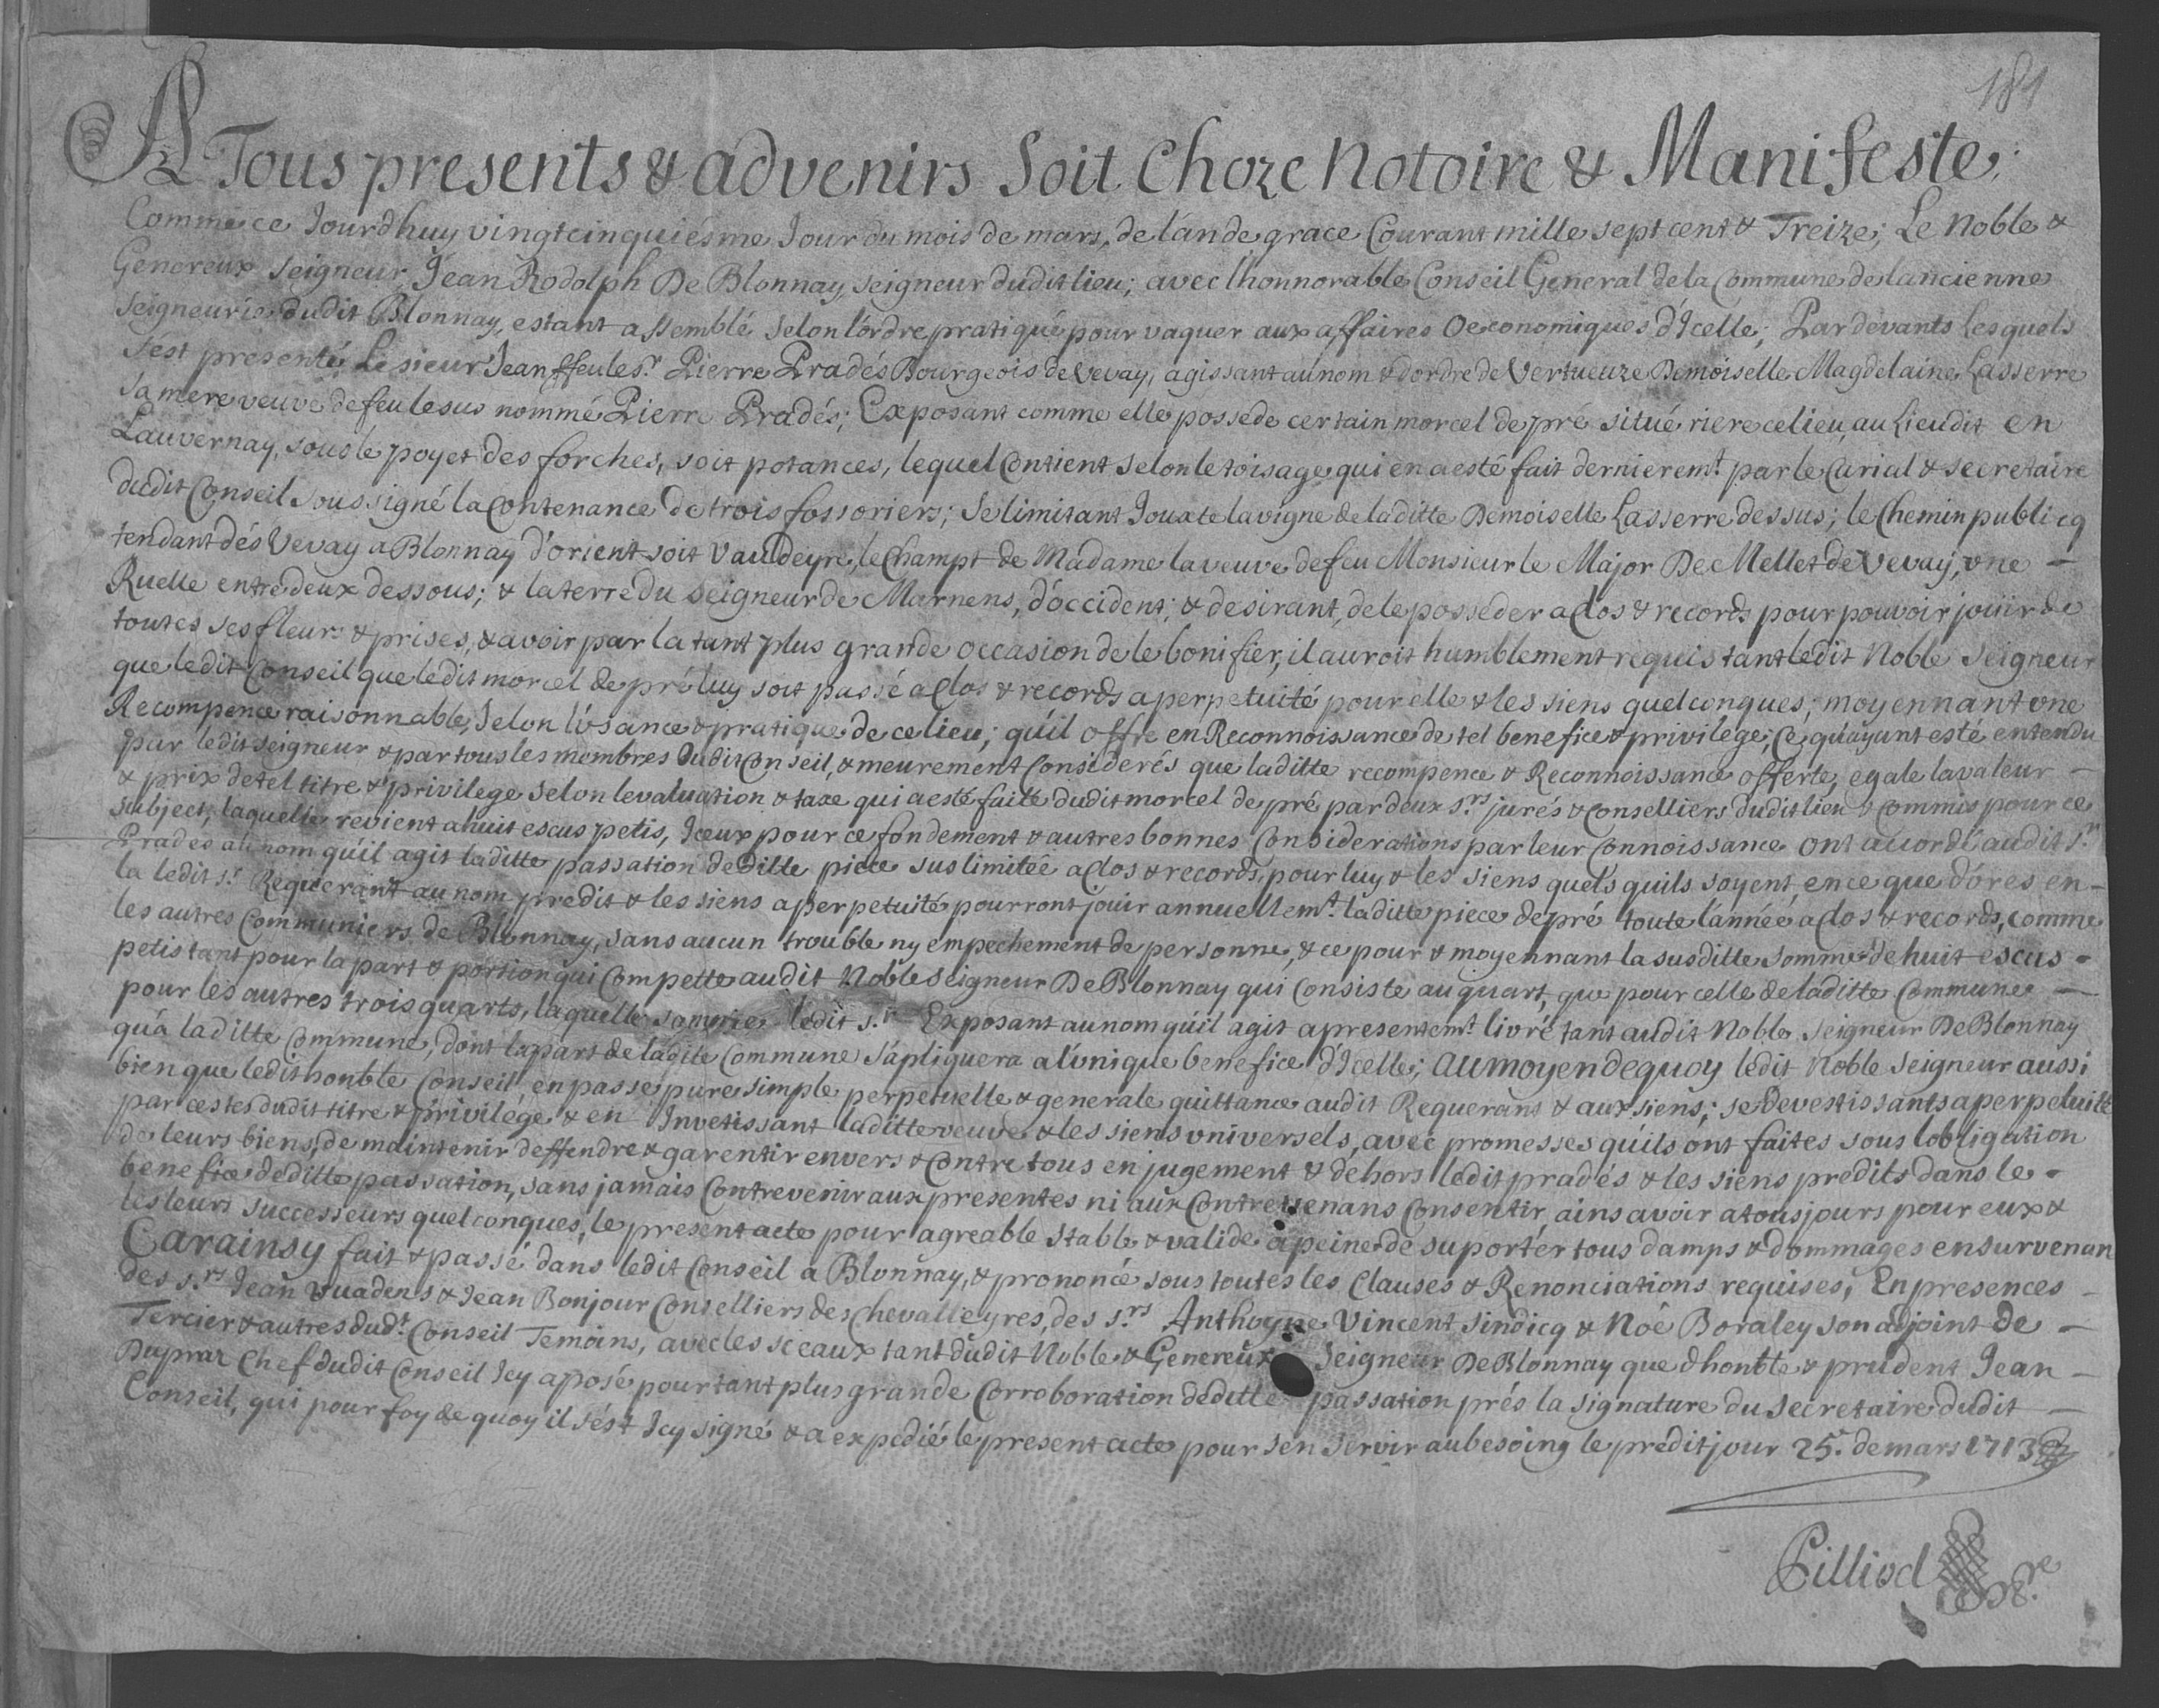 181
A Tous presents & advenirs Soit Choze Notoire & Manifeste;
Comme ce Jourdhuy vingtcinquiésme Jour du mois de mars, de lánde grace Courant mille sept cent & Treize; Le Noble &
Genereux Seigneur, Jean Rodolph De Blonnay, seigneur dudit lieu; avec lhonnorable Conseil General de la Commune de lancienne
Seigneurie dudit Blonnay, estant assemblé selon lórdre pratiqué pour vaquer aux affaires Oeconomiques d'Icelle; Pardevants Lesquels
sest presenté Le sieur Jean ffeu les.r Pierre Pradés Bourgeois de Vevay, agissant au nom & dordre de Vertueuze Demoiselle Magdelaine Lasserre
sa mere veuve de feu le sus nommé Pierre Pradés; Exposant comme elle possede certain morcel de pré situé riere ce lieu, au Lieudit en
Lauvernay, sous le poyet des forches, soit potances, lequel Contient selon le toisage qui en a esté fait dernierem.t par le Curial & secretaire
dudit Conseil soussigné la Contenance de trois fossoriers; se limitant Jouxte la vigne de laditte Demoiselle Lasserre dessus; le Chemin publicq
tendant dés Vevay a Blonnay d'orient soit Vaudeyre, le Champt de Madame la veuve de feu Monsieur le Major De Mellet de Vevay, vne
Ruelle entre deux dessous; & la terre du seigneur de Marnens, d'occident; & desirant, de le posseder a Clos & records pour pouvoir joüir de
toutes ses fleurs & prises, & avoir par la tant plus grande occasion de le bonifier, il auroit humblement requis tant ledit Noble Seigneur
que ledit Conseil que ledit morcel de pré luy soit passé a Clos & records a perpetuité pour elle & les siens quelconques; moyennant vne
Recompence raisonnable, Selon lúsance & pratique de ce lieu; qúil offre en Reconnoissance de tel benefice & privilege; Ce qúayant esté entendu
par ledit seigneur & par tous les membres dudit Conseil, & meurement Considerés que laditte recompence & Reconnoissance offerte, egale la valeur
& prix de tel titre & privilege selon levaluation & taxe qui a esté faitte dudit morcel de pré par deux s.rs jurés & Conselliers dudit lieu & Commis pour ce
subject, laquelle revient a huit escus petis, Iceux pour ce fondement & autres bonnes Considerations par leur Connoissance ont accordé audit s.r
Prades au nom qúil agit laditte passation de ditte piece sus limitée a Clos & records, pour luy & les siens quels quils soyent, en ce que dóres en-
la ledit s.r Requerant au nom predit & les siens a perpetuité pourront joüir annuellem.t laditte piece de pré toute lánnéé a clos & records, comme
les autres Communiers de Blonnay, sans aucun trouble ny empechement de personne, & ce pour & moyennant la susditte somme de huit escus
petis tant pour la part & portion qui Compette audit Noble Seigneur De Blonnay qui Consiste au quart, que pour celle de laditte Commune
pour les autres trois quarts, laquelle somme ledit s.r Exposant au nom qúil agit a presentem.t livré tant audit Noble Seigneur De Blonnay
qúa laditte Commune, dont la part de ladite Commune s'apliquera a lúnique benefice d'Icelle; Au moyen de quoy ledit Noble Seigneur aussi
bien que ledit honble Conseil en passe pure simple perpetuelle & generale quittance audit Requerant & aux siens; se Devestissants a perpetuité
par cestes dudit titre & privilége & en Invetissant laditte veuve & les siens vniversels, avec promesses qúils ont faites sous lobligation
de leurs biens, de maintenir deffendre & garentir envers & Contre tous en jugement & dehors ledit pradés & les siens predits dans le
benefice de ditte passation, sans jamais Contrevenir aux presentes ni aux Contrevenans Consentir, ains avoir a tousjours pour eux &
les leurs successeurs quelconques, le present acte pour agreable stable & valide a peine de suporter tous damps & dommages en survenan
Carainsy fait & passé dans ledit Conseil a Blonnay, & prononcé sous toutes les Clauses & Renonciations requises, En presences
des s.rs Jean Vuadens & Jean Bonjour Conselliers des Chevalleyres, des s.rs Anthoyne Vincent sindicq & Noé Boraley son adjoint de
Tercier & autres dud.t Conseil Temoins, avec les sceaux tant dudit Noble & Genereux Seigneur De Blonnay que dhonble & prudent Jean
Dupraz Chef dudit Conseil Icy aposé pour tant plus grande Corroboration de ditte passation prés la signature du secretaire dudit
Conseil, qui pour foy de quoy il sést Icy signé & a expedié le present acte pour sen servir au besoing le predit jour 25.e de mars 1713
Pilliod